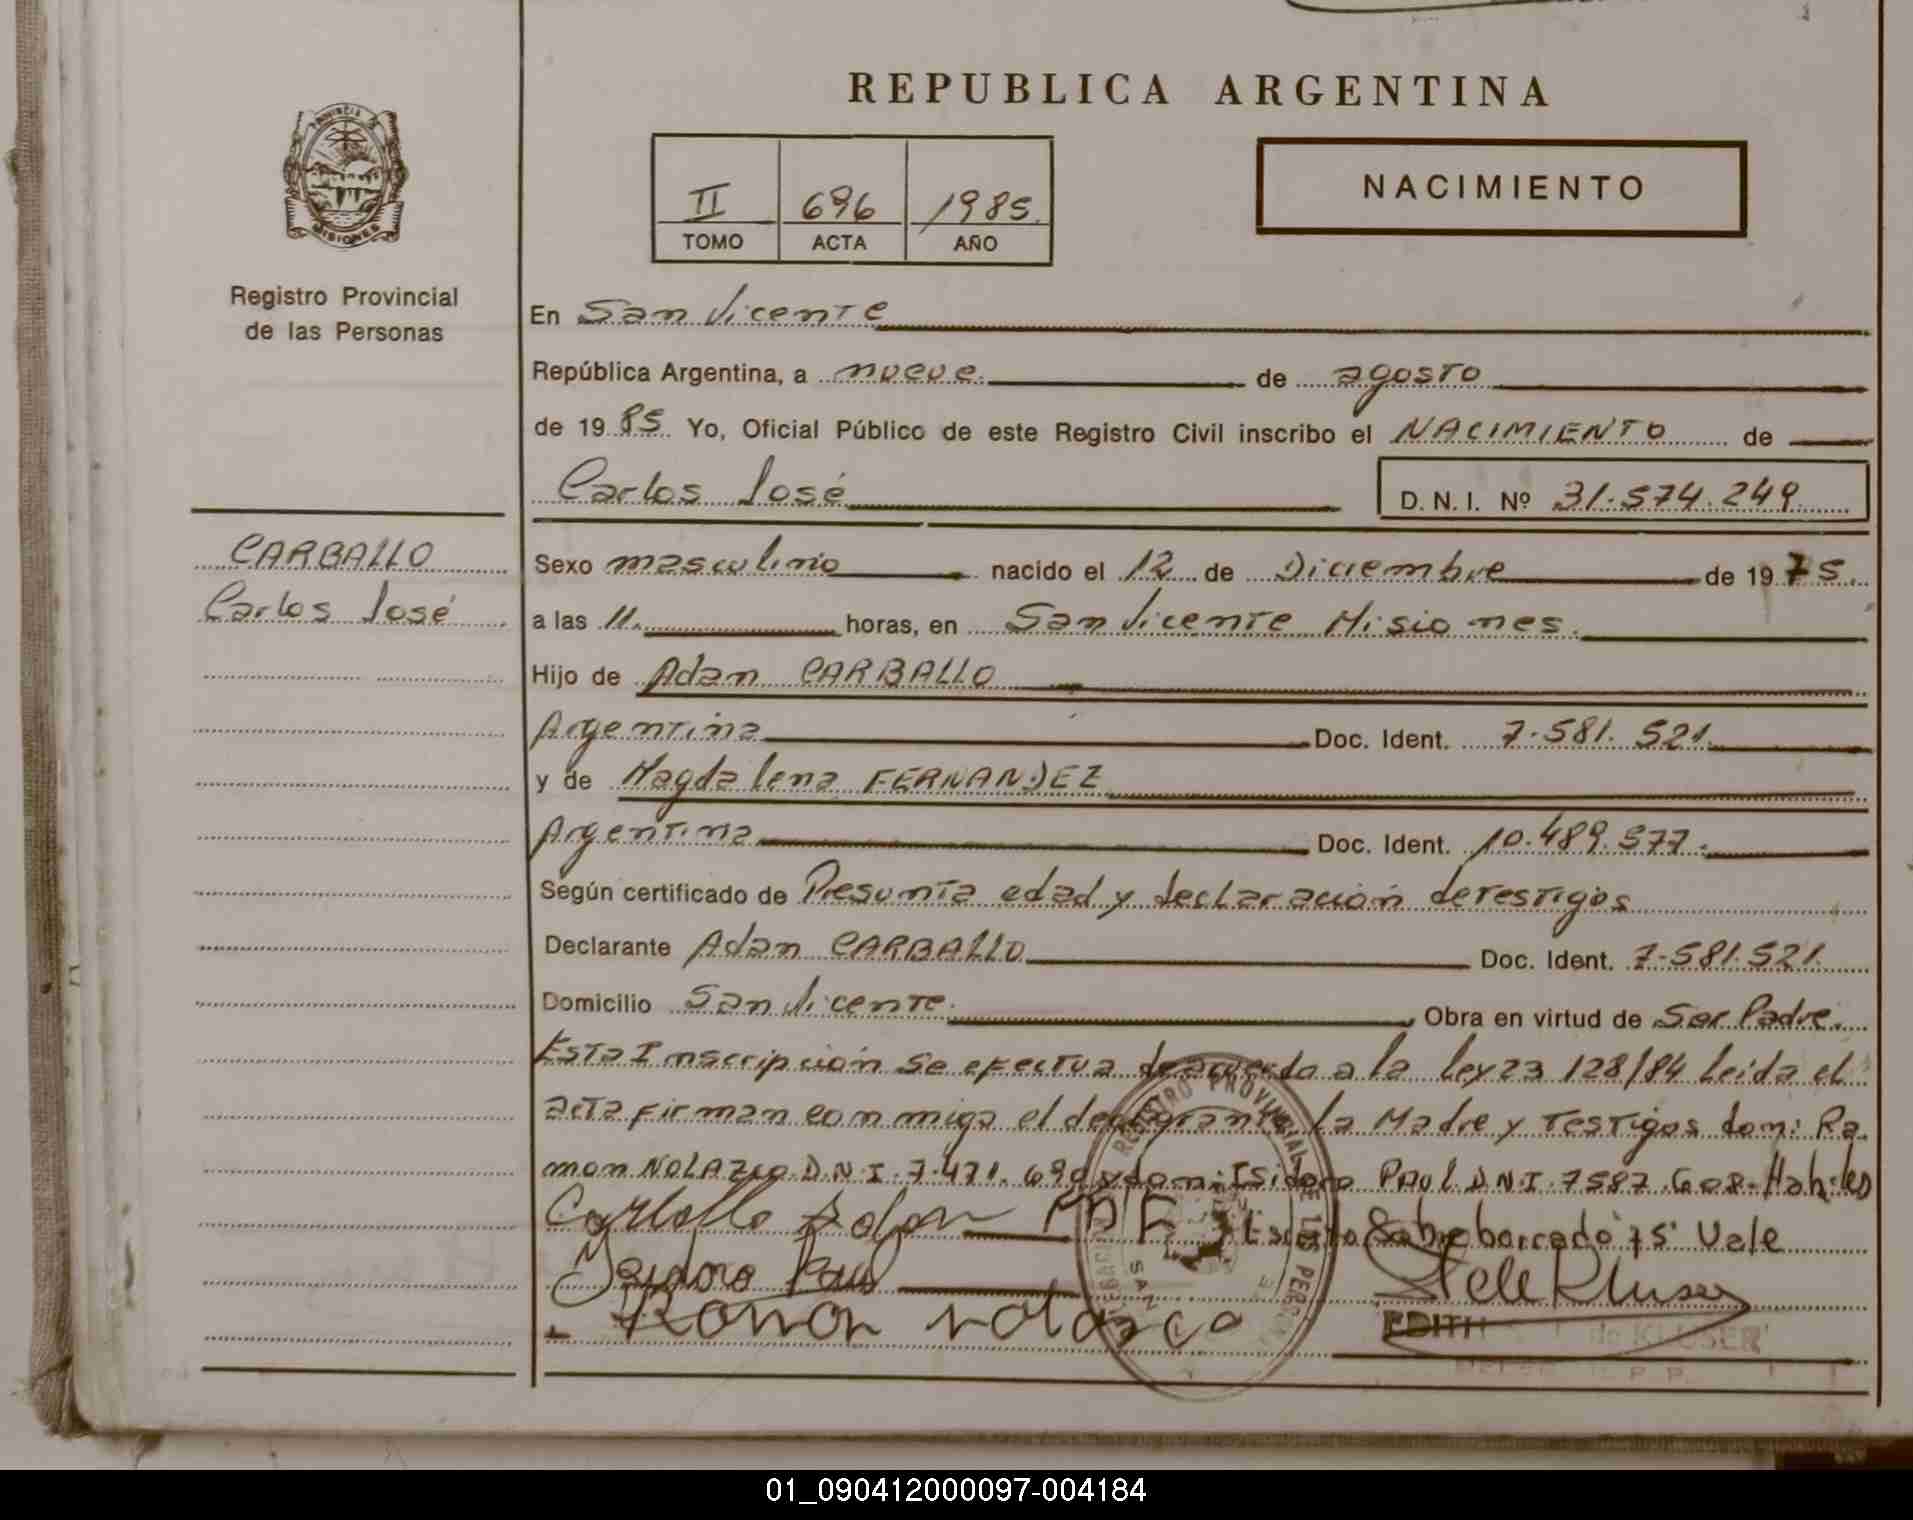 REPUBLICA ARGENTINA
PROVINCIA
MISIONES
Registro Provincial
de las Personas
II 696 1985.
TOMO ACTA AÑO
NACIMIENTO
En San Vicente
República Argentina, a nueve. de agosto
de 1985 Yo, Oficial Público de este Registro Civil inscribo el NACIMIENTO de
Carlos José D.N.I. Nº 31.574.249
CARBALLO
Carlos José
Sexo masculino nacido el 12 de Diciembre de 1975.
a las 11. horas, en San Vicente Misiones.
Hijo de Adan CARBALLO
Argentina Doc. Ident. 7.581.521.
y de Magdalena FERNANDEZ
Argentina Doc. Ident. 10.489.577.
Según certificado de Presunta edad y declaración de testigos
Declarante Adan CARBALLO Doc. Ident. 7.581.521.
Domicilio San Vicente. Obra en virtud de Ser Padre.
Esta Inscripción se efectua deacuerdo a la ley 23 128/84 leida el
acta firman conmigo el la Madre y Testigos don: Ra
mon NOLAZCO D.N.I. 7.471.690 y don: Isidoro PAUL D.N.I. 7587.608- Habiles
Carballo Adan M F Escrito Sobreborrado 75 Vale
Isidoro Paul
Ramon nolasco
EDITH de KLUSER
REGISTRO PROVINCIAL DE LAS PERSONAS
DELEGACION SAN
01_090412000097-004184